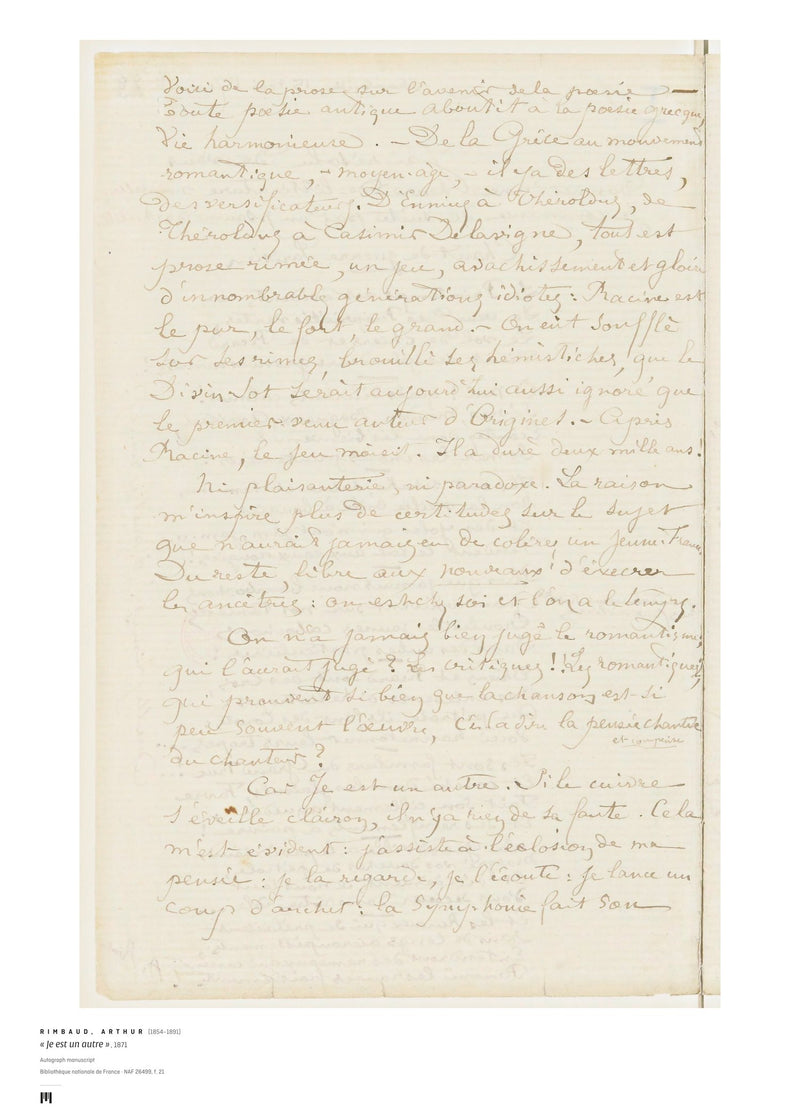 Voici de la prose sur l'avenir de la poésie —
Toute poésie antique aboutit à la poésie grecque,
Vie harmonieuse. – De la Grèce au mouvement
romantique, – moyen-âge, – il y a des lettrés,
des versificateurs. D'Ennius à Théroldus, de
Théroldus à Casimir Delavigne, tout est
prose rimée, un jeu, avachissement et gloire
d'innombrables générations idiotes : Racine est
le pur, le fort, le grand. – On eût soufflé
sur ses rimes, brouillé ses hémistiches, que le
Divin Sot serait aujourd'hui aussi ignoré que
le premier venu auteur d'Origines. – Après
Racine, le jeu moisit. Il a duré deux mille ans !
Ni plaisanterie, ni paradoxe. La raison
m'inspire plus de certitudes sur le sujet
que n'aurait jamais eu de colères un Jeune-France.
Du reste, libre aux nouveaux ! d'exécrer
les ancêtres : on est chez soi et l'on a le temps.
On n'a jamais bien jugé le romantisme ;
qui l'aurait jugé ? Les critiques !! Les romantiques,
qui prouvent si bien que la chanson est si
peu souvent l'œuvre, c'est à dire la pensée chantée
et comprise
du chanteur ?
Car Je est un autre. Si le cuivre
s'éveille clairon, il n'y a rien de sa faute. Cela
m'est évident : j'assiste à l'éclosion de ma
pensée : je la regarde, je l'écoute : je lance un
coup d'archet : la symphonie fait son
RIMBAUD, ARTHUR (1854-1891)
« Je est un autre », 1871
Autograph manuscript
Bibliothèque nationale de France · NAF 26499, f. 21